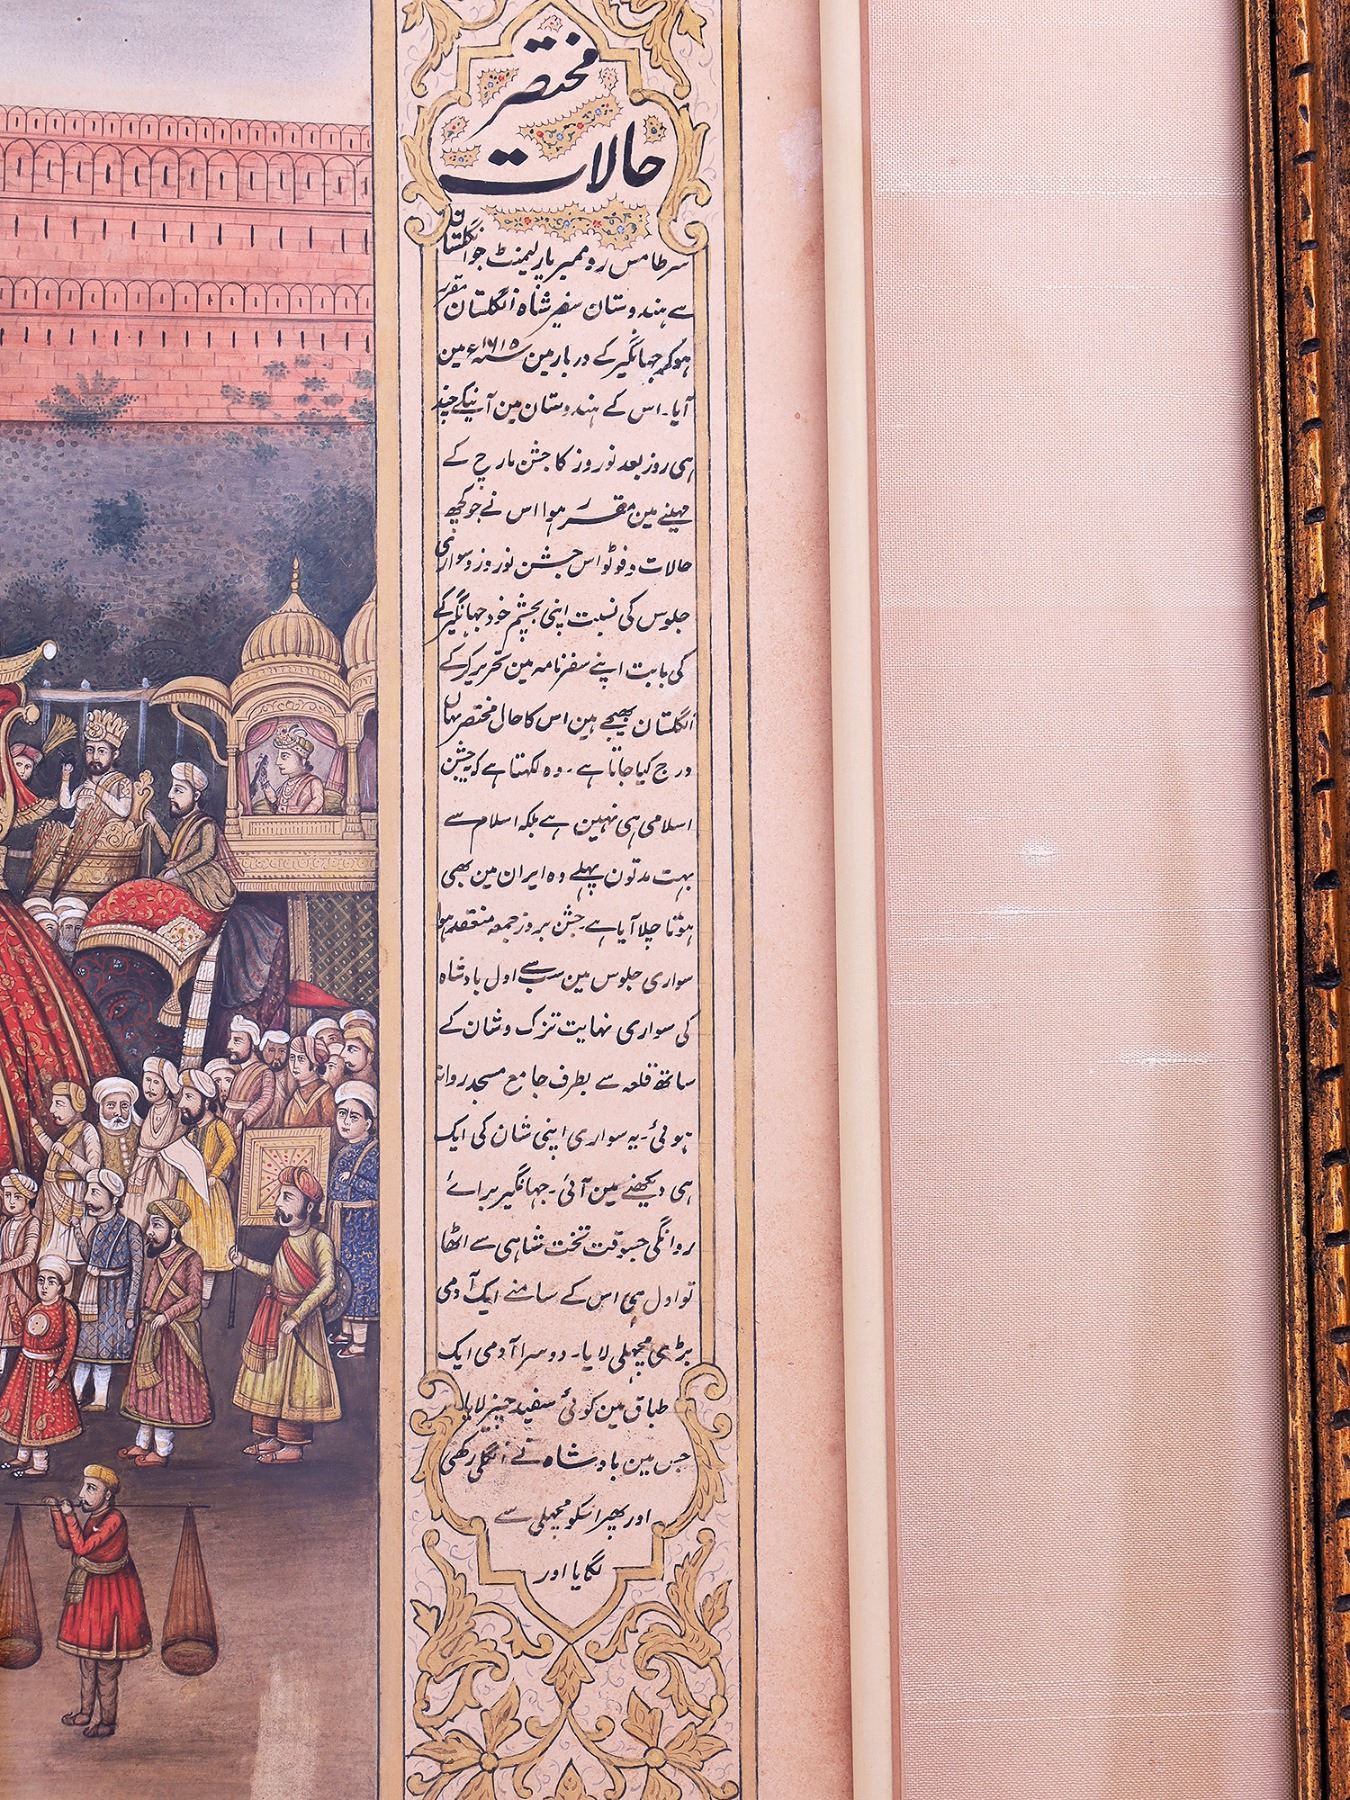 مختصر
حالات
سرطامس رو ممبر پارلیمنٹ جو انگلستان
سے ہندوستان سفیر شاہ انگلستان مقرر
ہوکر جہانگیر کے دربار مین سنہ ۱۶۱۵ء مین
آیا۔ اس کے ہندوستان مین آنیکے چند
ہی روز بعد نوروز کا جشن مارچ کے
مہینے مین مقرر ہوا اس نے جو کچھ
حالات و فوٹو اس جشن نوروز و سواری
جلوس کی نسبت اپنی بچشم خود جہانگیر کے
کی بابت اپنے سفرنامہ مین تحریر کرکے
انگلستان بھیجے ہین اس کا حال مختصر یہاں
درج کیا جاتا ہے۔ وہ لکہتا ہے کہ جشن
اسلامی ہی نہین ہے بلکہ اسلام سے
بہت مدتون پہلے وہ ایران مین بھی
ہوتا چلا آیا ہے۔ جشن بروز جمعہ منعقد ہوا
سواری جلوس مین سب سے اول بادشاہ
کی سواری نہایت تزک و شان کے
ساتھ قلعہ سے بطرف جامع مسجد روانہ
ہوئی۔ یہ سواری اپنی شان کی ایک
ہی دیکھنے مین آئی۔ جہانگیر برائے
روانگی جسوقت تخت شاہی سے اٹھا
تو اول ہی اس کے سامنے ایک آدمی
بڑی مچہلی لایا۔ دوسرا آدمی ایک
طباق مین کوئی سفید چیز لایا
جس مین بادشاہ نے انگلی رکھی
اور پھر اسکو مچہلی سے
لگایا اور